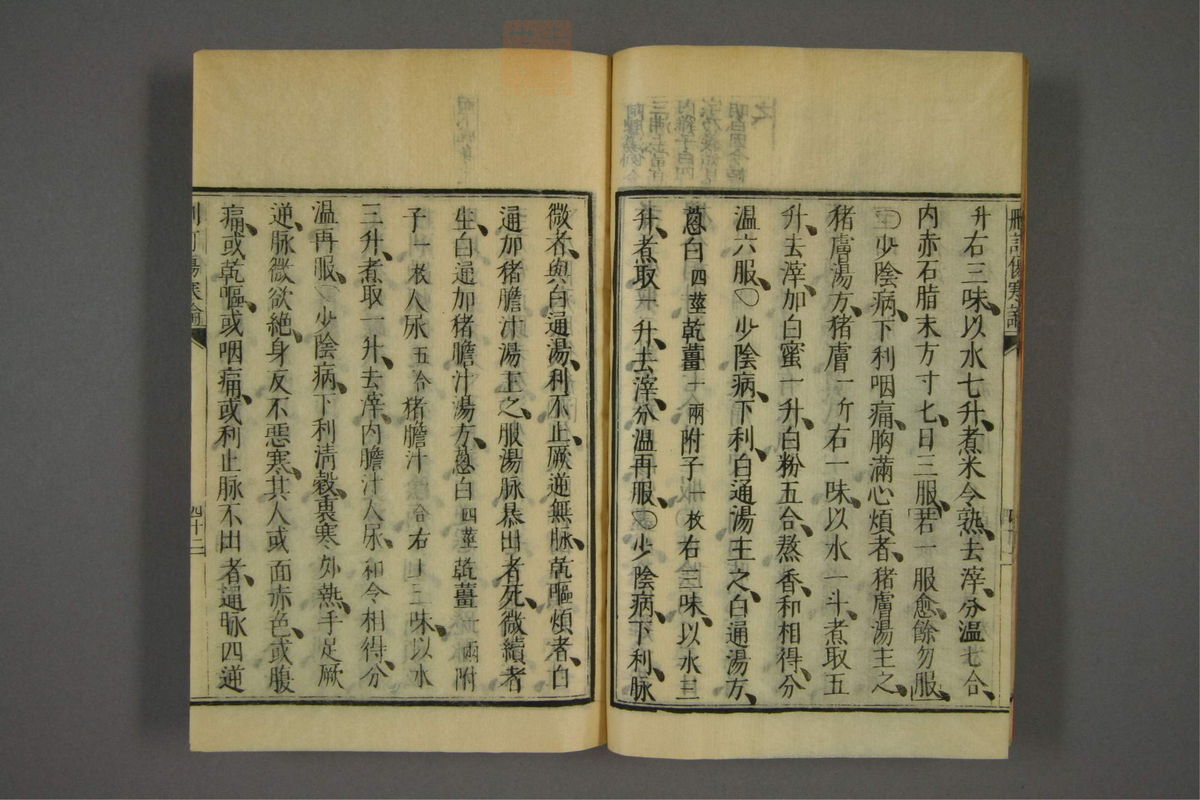 刪訂傷寒論
升右三味、以水七升、煮米令熟、去滓、分溫七合、
內赤石脂末方寸七、日三服、「若一服愈、餘勿服、」
〇少陰病、下利咽痛、胸滿心煩者、猪膚湯主之、
猪膚湯方、猪膚一斤右一味、以水一斗、煮取五
升、去滓、加白蜜一升、白粉五合、熬香、和相得、分
溫六服、〇少陰病、下利、白通湯主之、白通湯方、
葱白四莖乾薑一兩附子一枚右三味、以水三
升、煮取一升、去滓、分溫再服、〇少陰病、下利、脉
微者、與白通湯、利不止、厥逆無脉、乾嘔煩者、白
通加猪膽汁湯主之、服湯脉暴出者死、微續者
生、白通加猪膽汁湯方、葱白四莖乾薑一兩附
子一枚人尿五合猪膽汁一合右上三味、以水
三升、煮取一升、去滓、內膽汁人尿、和令相得、分
溫再服、〇少陰病、下利淸穀、裏寒外熱、手足厥
逆、脉微欲絕、身反不惡寒、其人或面赤色、或腹
痛、或乾嘔、或咽痛、或利止脉不出者、通脉四逆
刪訂傷寒論
四十二